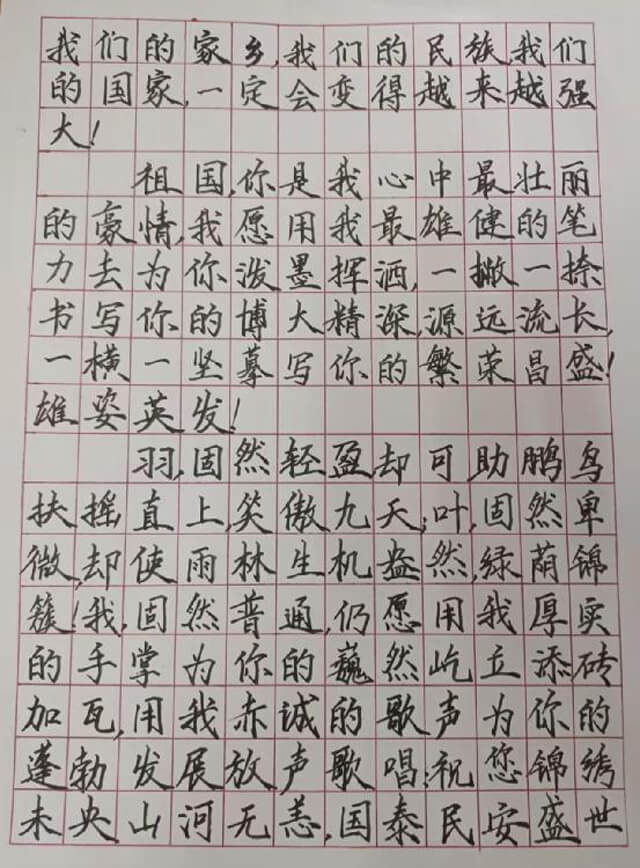 我们的家乡,我们的民族,我们
的国家,一定会变得越来越强
大!
祖国,你是我心中最壮丽
的豪情,我愿用我最雄健的笔
力去为你泼墨挥洒,一撇一捺
书写你的博大精深,源远流长,
一横一坚摹写你的繁荣昌盛!
雄姿英发!
羽,固然轻盈却可助鹏鸟
扶摇直上,笑傲九天;叶,固然卑
微,却使雨林生机盎然,绿荫锦
簇!我,固然普通,仍愿用我厚实
的手掌为你的巍然屹立添砖
加瓦,用我赤诚的歌声为你的
蓬勃发展放声歌唱;祝您锦绣
未央,山河无恙,国泰民安盛世